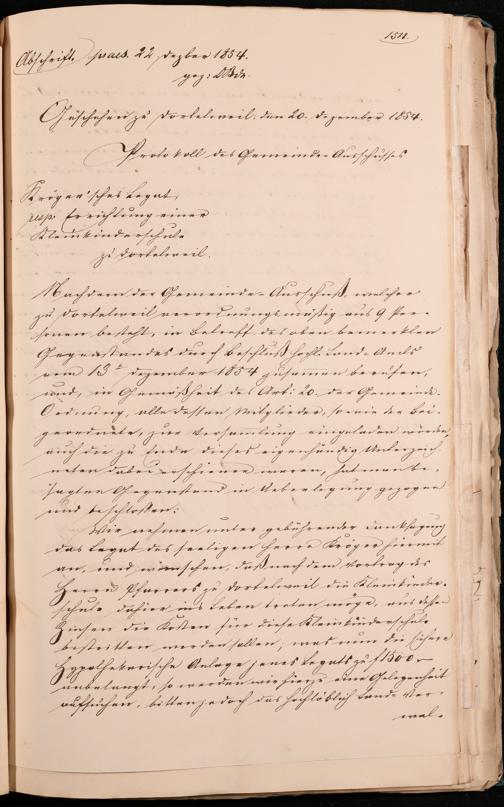 1511.
Abschrift praes. 22 Dezber 1854.
gez:
Geschehen zu Dortelweil, den 20. Dezember 1854.
Protokoll des Gemeinde-Ausschusses
Kröger'sches Legat,
resp. Errichtung einer
Kleinkinderschule
zu Dortelweil.
Nachdem der Gemeinde-Ausschuß, welcher
zu Dortelweil verordnungsmäßig aus 9 Per-
sonen besteht, in Betreff des oben bemerkten
Gegenstandes durch Beschluß hohl. Land-Amts
vom 13t Dezember 1854 zusammen berufen,
und, in Gemäßheit des Art: 20. der Gemeinde-
Ordnung, alle dessen Mitglieder, sowie der Bei-
geordnete, zur Versammlung eingeladen worden,
auch die zu Ende dieses eigenhändig Unterzeich-
neten dabei erschienen waren, hat man be-
sagten Gegenstand in Ueberlegung gezogen
und beschloßen:
Wir nehmen unter gebührender Danksagung
das Legat des seeligen Herrn Kröger hiermit
an, und wünschen, daß nach dem Vortrag des
Herrn Pfarrers zu Dortelweil die Kleinkinder-
schule dahier ins Leben treten möge, aus deßen
Zinsen die Kosten für diese Kleinkinderschule
bestritten werden sollen, was nun die sichere
Hypothekarische Anlage jenes Legats zu f 1500 -
anbelangt, so werden wir hierzu eine Gelegenheit
aufsuchen, bitten jedoch das hochlöblich Land-Ver-
wal-